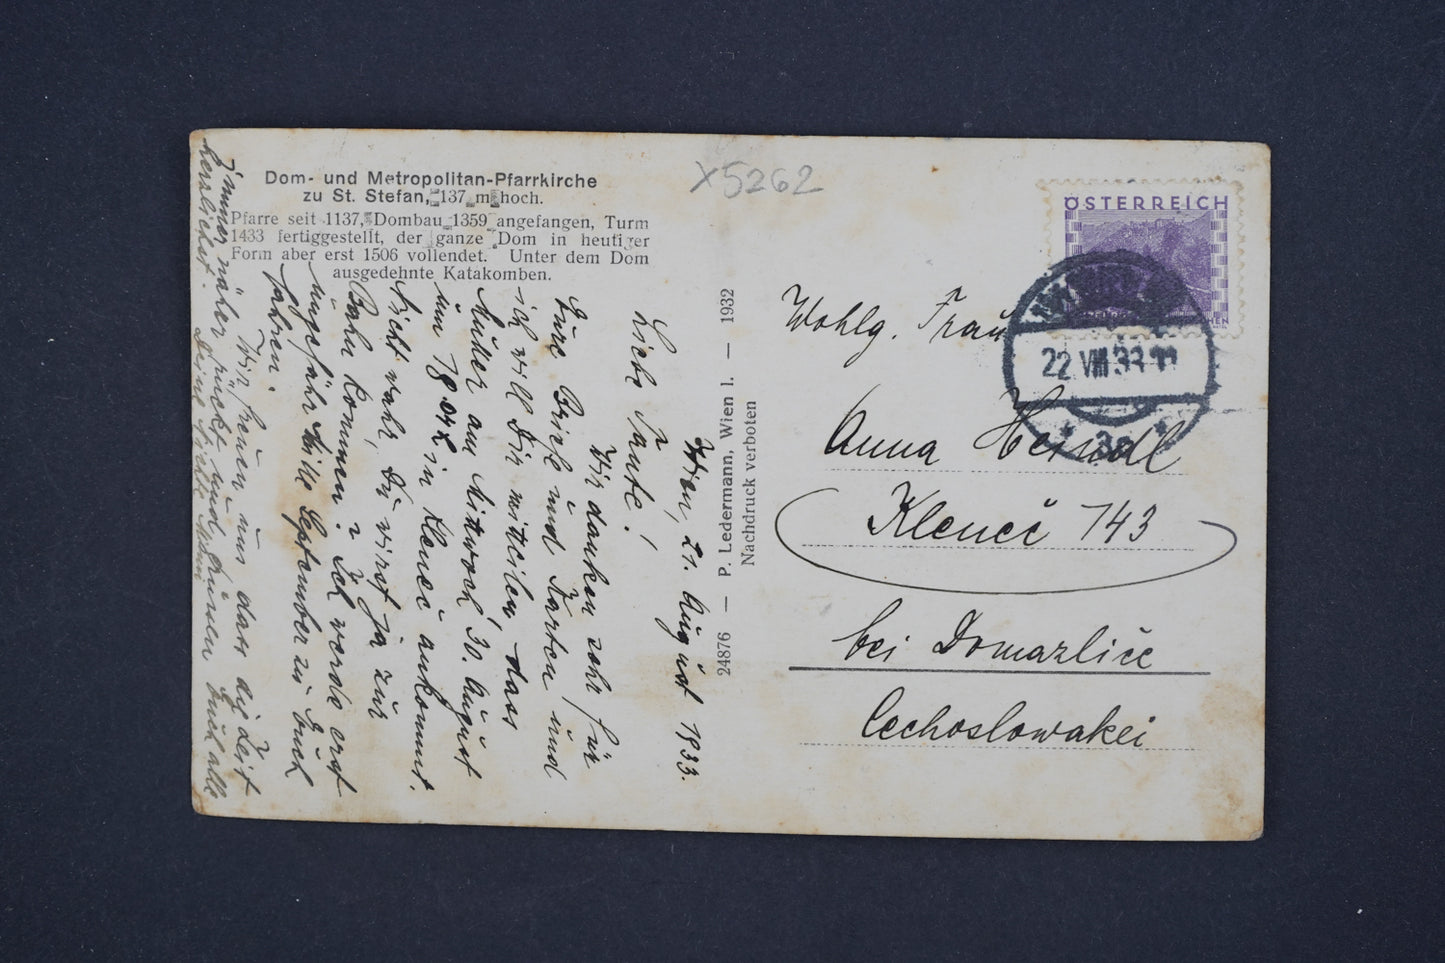 Dom- und Metropolitan-Pfarrkirche
zu St. Stefan, 137 m hoch.
Pfarre seit 1137, Dombau 1359 angefangen, Turm
1433 fertiggestellt, der ganze Dom in heutiger
Form aber erst 1506 vollendet. Unter dem Dom
ausgedehnte Katakomben.
X5262
Wien, 21. August 1933.
Liebe Tante!
Wir danken sehr für
Eure Briefe und Karten und
ich will Dir mitteilen, dass
Mutter am Mittwoch, 30. August
um 18 04 in Kleneč ankommt.
Nicht wahr, Du wirst ja zur
Bahn kommen? Ich werde erst
ungefähr Mitte September zu Euch
fahren.
Wir freuen uns dass die Zeit
immer näher rückt und grüssen Euch alle
herzlichst. Deine
24876 — P. Ledermann, Wien I. — 1932
Nachdruck verboten
ÖSTERREICH
22 VIII 33
Wohlg. Frau
Anna Heindl
Kleneč 143
bei Domažlice
Čechoslowakei